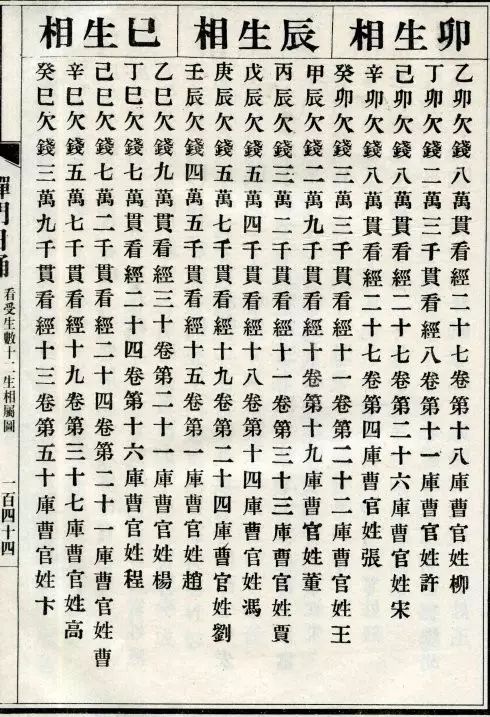 卯生相
乙卯欠錢八萬貫看經二十七卷第十八庫曹官姓柳
丁卯欠錢二萬三千貫看經八卷第十一庫曹官姓許
己卯欠錢八萬貫看經二十七卷第二十六庫曹官姓宋
辛卯欠錢八萬貫看經二十七卷第四庫曹官姓張
癸卯欠錢三萬三千貫看經十一卷第二十二庫曹官姓王
辰生相
甲辰欠錢二萬九千貫看經十卷第十九庫曹官姓董
丙辰欠錢三萬二千貫看經十一卷第三十三庫曹官姓賈
戊辰欠錢五萬四千貫看經十八卷第十四庫曹官姓馮
庚辰欠錢五萬七千貫看經十九卷第二十四庫曹官姓劉
壬辰欠錢四萬五千貫看經十五卷第一庫曹官姓趙
巳生相
乙巳欠錢九萬貫看經三十卷第二十一庫曹官姓楊
丁巳欠錢七萬貫看經二十四卷第十六庫曹官姓程
己巳欠錢七萬二千貫看經二十四卷第二十一庫曹官姓曹
辛巳欠錢五萬七千貫看經十九卷第三十七庫曹官姓高
癸巳欠錢三萬九千貫看經十三卷第五十庫曹官姓卞
禪門日誦
看受生數十二生相屬圖
一百四十四